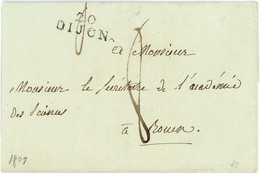 20
DIJON
A Monsieur
Monsieur le secrétaire de l'académie
des Sciences
à Rouen.